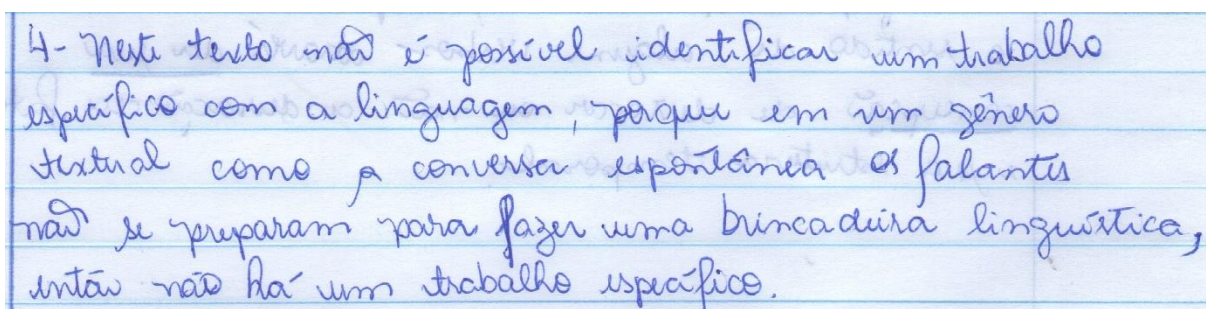 4- Neste texto não é possível identificar um trabalho
específico com a linguagem, porque em um gênero
textual como a conversa espontânea os falantes
não se preparam para fazer uma brincadeira linguística,
então não há um trabalho específico.